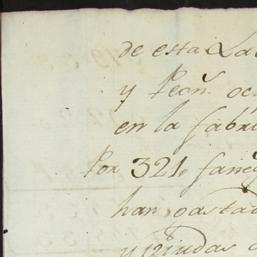 de esta La
y Pecn. oc
en la fabri
Por 321 faneg
han gastad
y viudas